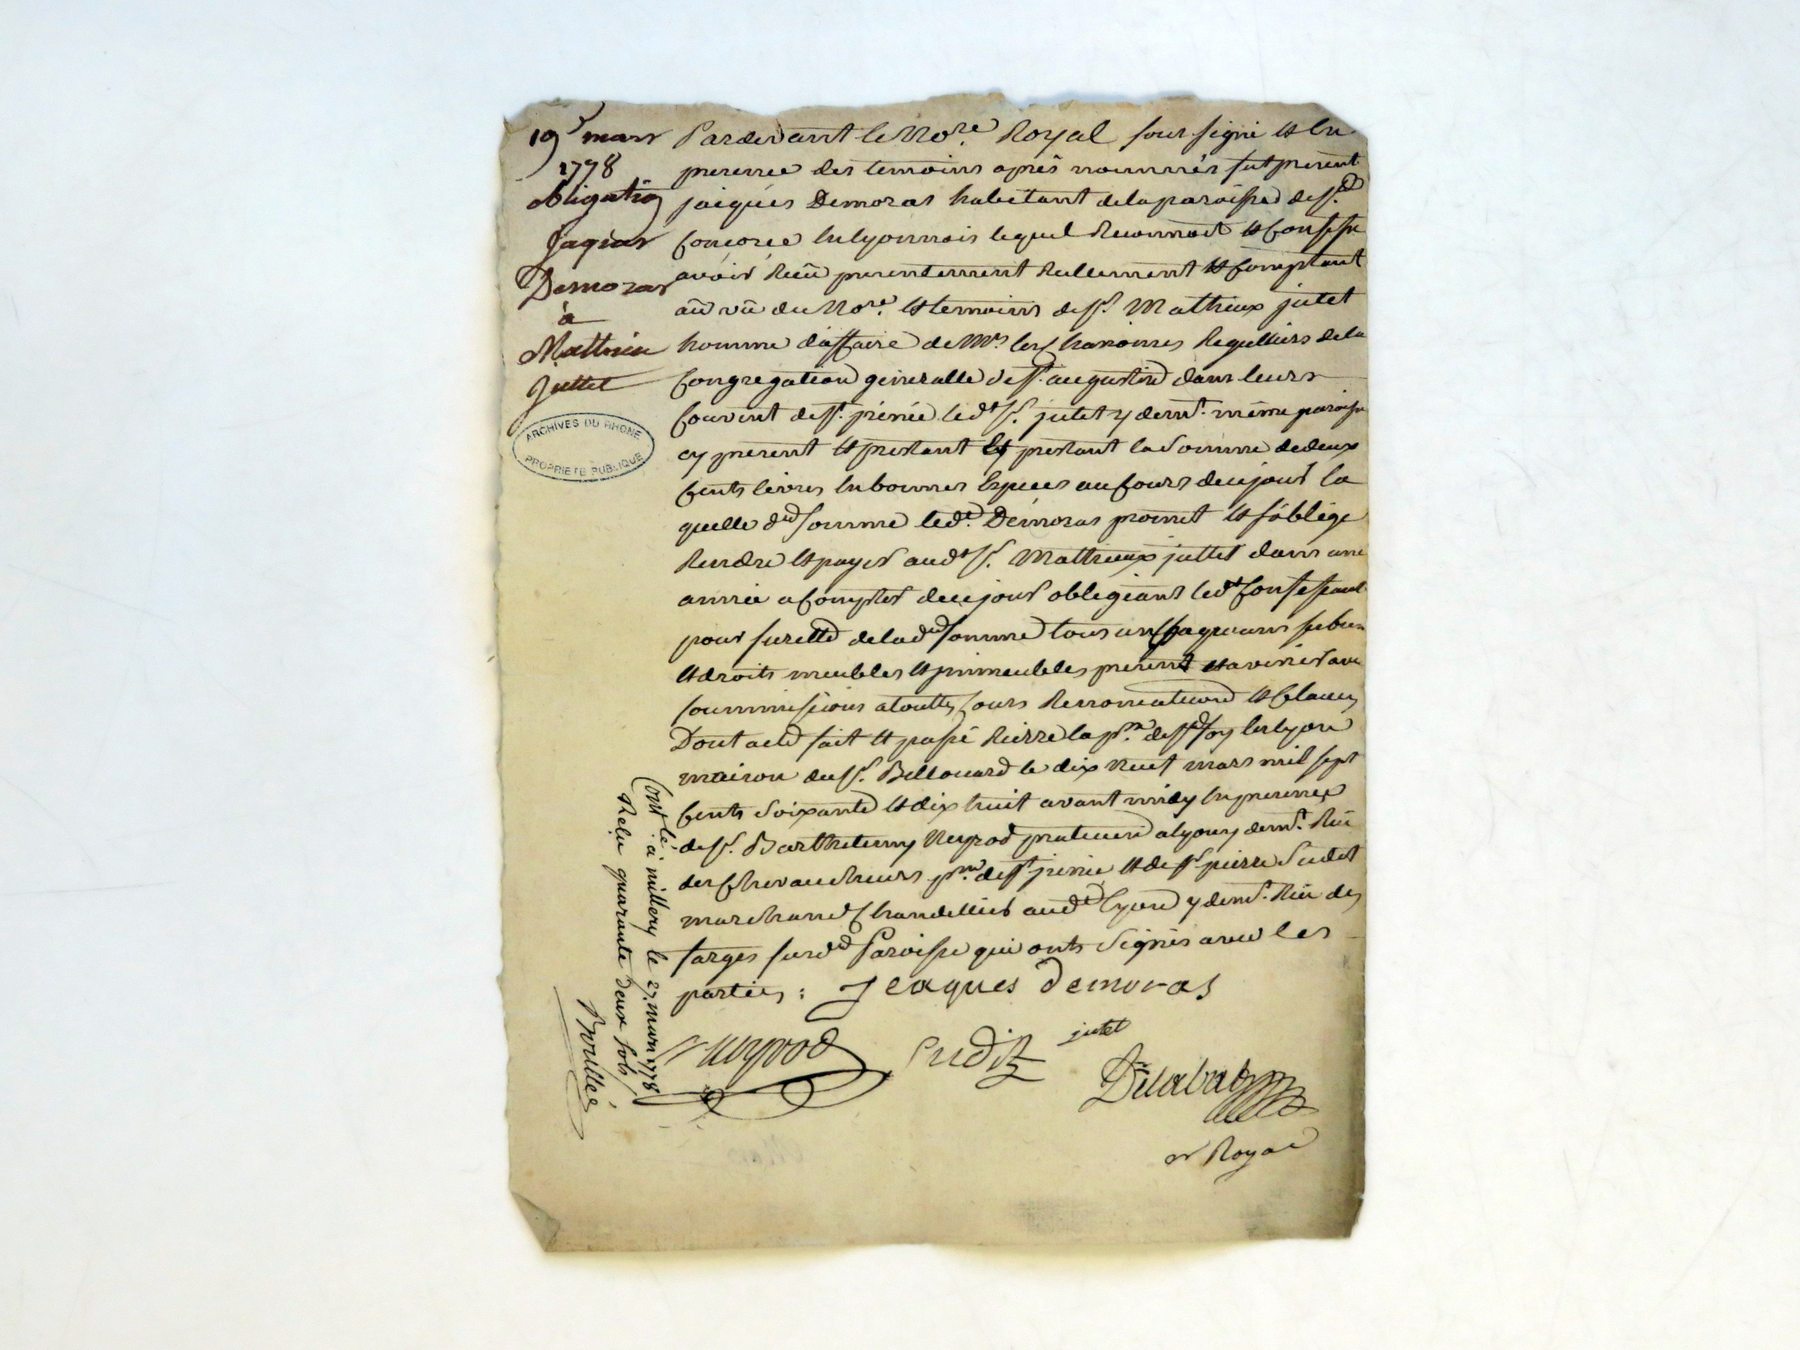 19 mars
1778
obligation
Jaques
Demoras
à
Mathieu
Juttet
ARCHIVES DU RHONE
PROPRIETE PUBLIQUE
Pardevant le No.re Royal sous signé et en
presence des temoins après nommés fut present
jaiques Demoras habitant de la paroisse de st
en lyonnois lequel Reconnoit et confesse
avoir Reçü presentement Reellement et comptant
au vü du No.re et temoins de sr. Mathieux jutet
homme d'affaire de Mrs les Chanoines Regulliers de la
Congregation generalle de st. augustin dans leurs
Couvent de st. jrénée led.t sr. jutet y dem.t même paroisse
cy present et prestant la somme de deux
Cents livres en bonnes Especes au Cours de ce jour la
quelle d.e somme led.t Demoras promet et s'oblige
Rendre et payer aud.t sr. Mathieux juttet dans une
année a Compter de ce jour obligeant led.t Confessant
pour suretté de lad.e somme tous un chaqu'uns ses biens
et droits meubles et jmmeubles presents et avenir avec
soummissions a touttes Cours Rennonciation et Clauses
Dont acte fait et passé
maison du sr. Billouard le dix neuf mars mil sept
Cents soixante et dix huit avant midy en presence
de sr. Barthelemy Neyrod praticien a lyon y dem.t Rüe
des Chevaucheurs p.sse de st jrénée et de sr pierre Sudit
marchand Chandellier aud.t Lyon y dem.t Rüe des
farges susd.e Paroisse qui onts Signés avec les
parties : Jeaques Demoras
Neyrod Sudit jutet
Delabal
nr Royal
Cont.lé à millery le 27 mars 1778
Reçu quarante deux sols